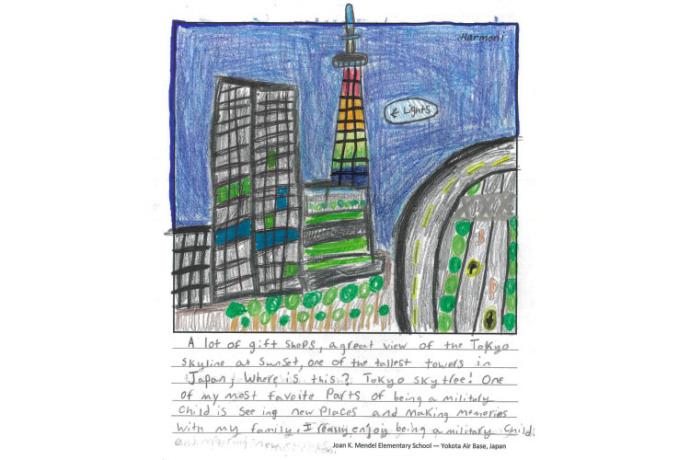 Harmoni
← Lights
A lot of gift shops, a great view of the Tokyo
skyline at sunset, one of the tallest towers in
Japan, Where is this? Tokyo skytree! One
of my most favoite Parts of being a military
Child is seeing new Places and Making Memories
with my family. I really enjoy being a military Child
Joan K. Mendel Elementary School — Yokota Air Base, Japan